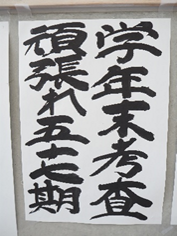 学年末考査
頑張れ五十七期